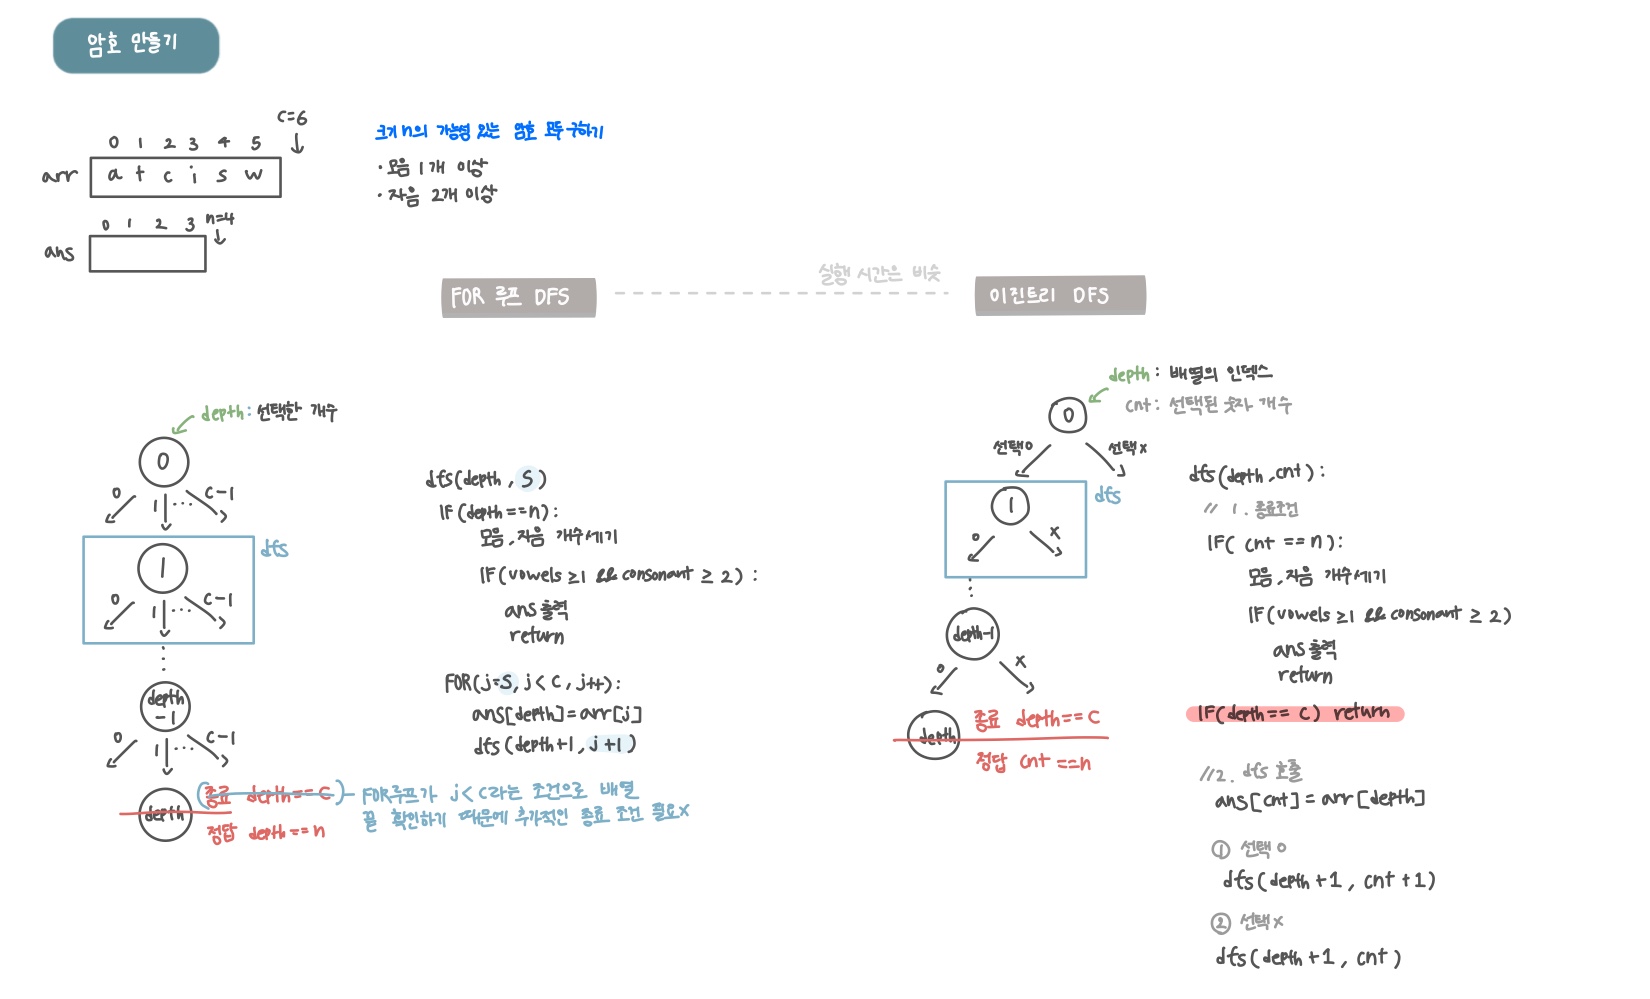 암호 만들기
C=6
0 1 2 3 4 5
arr a t c i s w
0 1 2 3 n=4
ans
크기 n의 가능성 있는 암호 모두 구하기
· 모음 1개 이상
· 자음 2개 이상
FOR 루프 DFS
실행 시간은 비슷
이진트리 DFS
depth : 선택한 개수
0
0 1 ... C-1
1
dfs
0 1 ... C-1
depth
-1
0 1 ... C-1
depth
종료 depth==C
정답 depth==n
FOR루프가 j<C라는 조건으로 배열
끝 확인하기 때문에 추가적인 종료 조건 필요X
dfs(depth, S)
IF(depth==n):
모음, 자음 개수세기
IF(vowels ≥1 && consonant ≥ 2) :
ans 출력
return
FOR(j=S, j<C, j++):
ans[depth]=arr[j]
dfs(depth+1, j+1)
depth : 배열의 인덱스
cnt : 선택된 숫자 개수
0
선택O 선택X
1
dfs
O X
depth-1
O X
depth
종료 depth==C
정답 cnt==n
dfs(depth,cnt):
// 1. 종료조건
IF( cnt ==n):
모음, 자음 개수세기
IF(vowels ≥1 && consonant ≥ 2)
ans 출력
return
IF(depth== C) return
//2. dfs 호출
ans[cnt]=arr[depth]
① 선택O
dfs(depth+1, cnt+1)
② 선택X
dfs(depth+1, cnt)